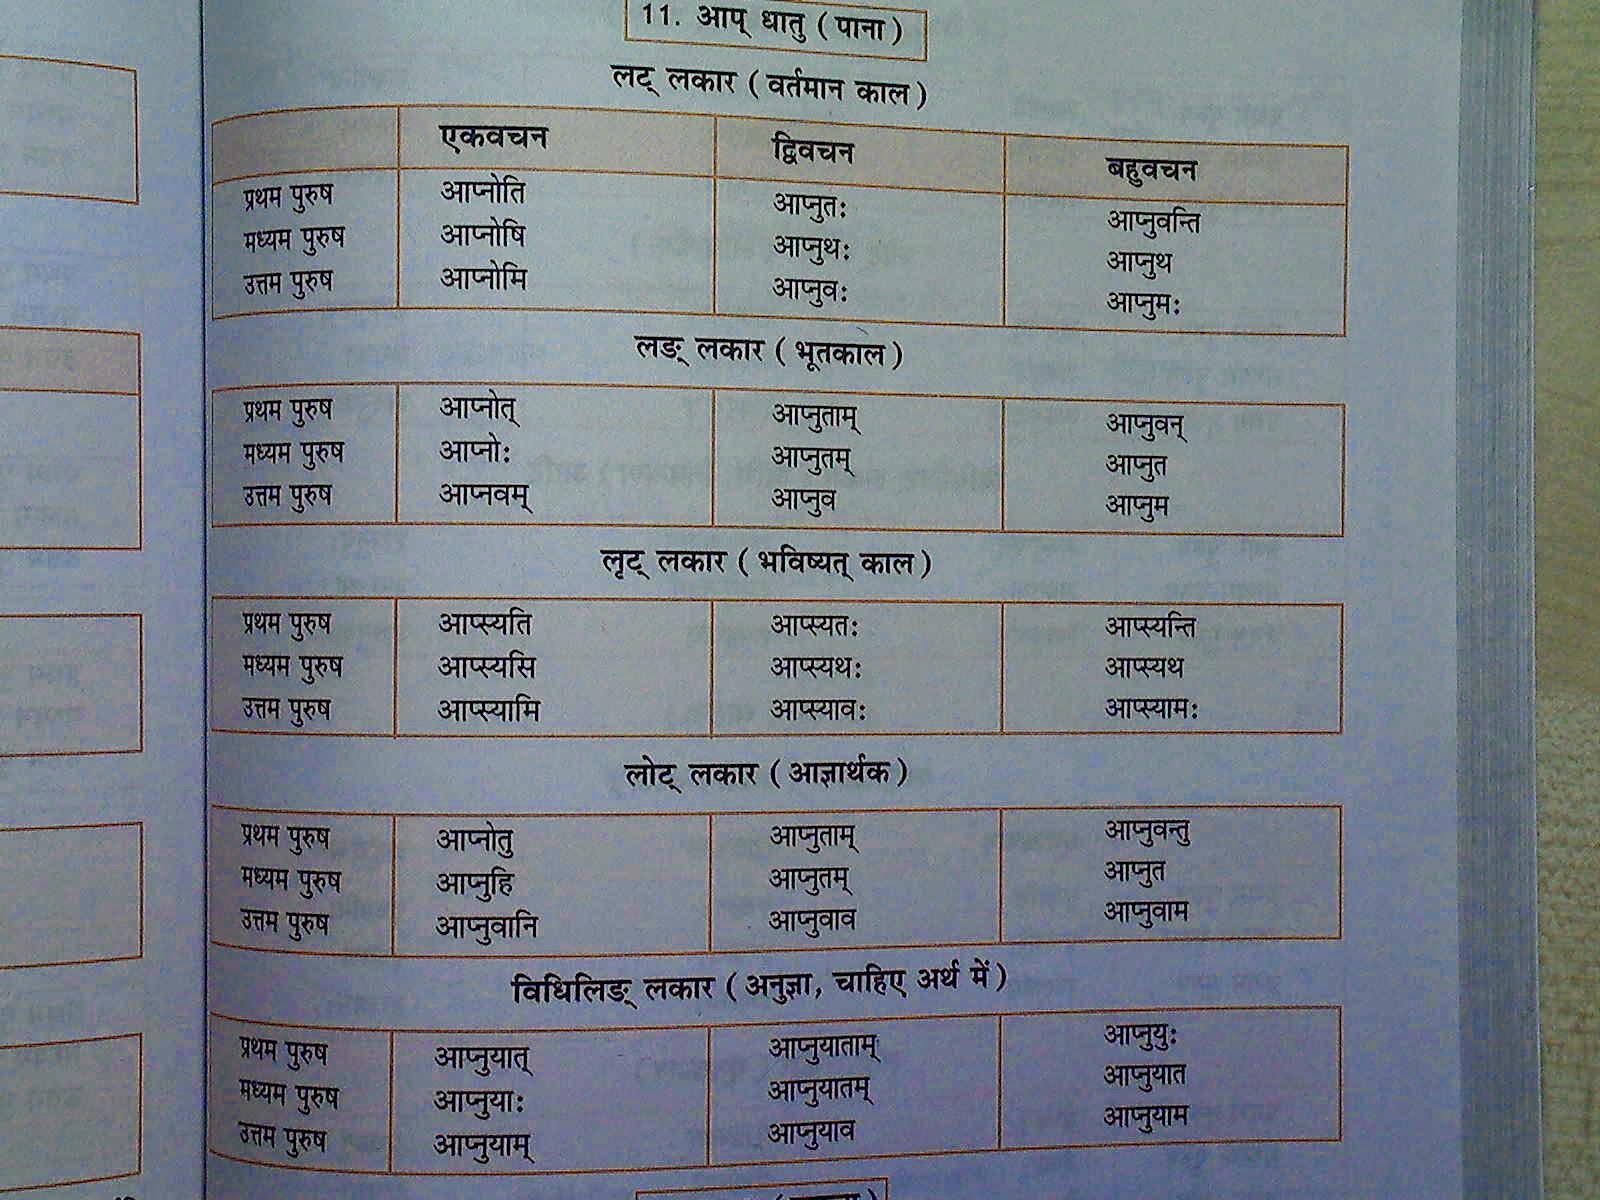 11. आप् धातु ( पाना )
लट् लकार ( वर्तमान काल )
एकवचन द्विवचन बहुवचन
प्रथम पुरुष आप्नोति आप्नुतः आप्नुवन्ति
मध्यम पुरुष आप्नोषि आप्नुथः आप्नुथ
उत्तम पुरुष आप्नोमि आप्नुवः आप्नुमः
लङ् लकार ( भूतकाल )
प्रथम पुरुष आप्नोत् आप्नुताम् आप्नुवन्
मध्यम पुरुष आप्नोः आप्नुतम् आप्नुत
उत्तम पुरुष आप्नवम् आप्नुव आप्नुम
लृट् लकार ( भविष्यत् काल )
प्रथम पुरुष आप्स्यति आप्स्यतः आप्स्यन्ति
मध्यम पुरुष आप्स्यसि आप्स्यथः आप्स्यथ
उत्तम पुरुष आप्स्यामि आप्स्यावः आप्स्यामः
लोट् लकार ( आज्ञार्थक )
प्रथम पुरुष आप्नोतु आप्नुताम् आप्नुवन्तु
मध्यम पुरुष आप्नुहि आप्नुतम् आप्नुत
उत्तम पुरुष आप्नुवानि आप्नुवाव आप्नुवाम
विधिलिङ् लकार ( अनुज्ञा, चाहिए अर्थ में )
प्रथम पुरुष आप्नुयात् आप्नुयाताम् आप्नुयुः
मध्यम पुरुष आप्नुयाः आप्नुयातम् आप्नुयात
उत्तम पुरुष आप्नुयाम् आप्नुयाव आप्नुयाम